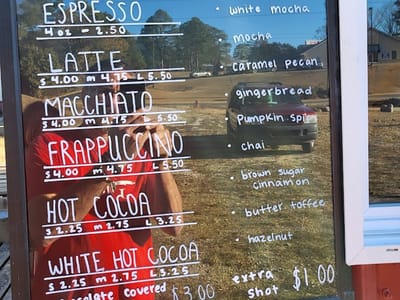 ESPRESSO
4oz - 2.50
LATTE
$ 4.00 m 4.75 L 5.50
MACCHIATO
$ 4.00 m 4.75 L 5.50
FRAPPUCCINO
$ 4.00 m 4.75 L 5.50
HOT COCOA
$ 2.25 m 2.75 L 3.25
WHITE HOT COCOA
$ 2.25 m 2.75 L 3.25
covered $3.00
• white mocha
mocha
caramel pecan
gingerbread
Pumpkin Spice
• chai
• brown sugar
cinnamon
• butter toffee
• hazelnut
extra $1.00
shot